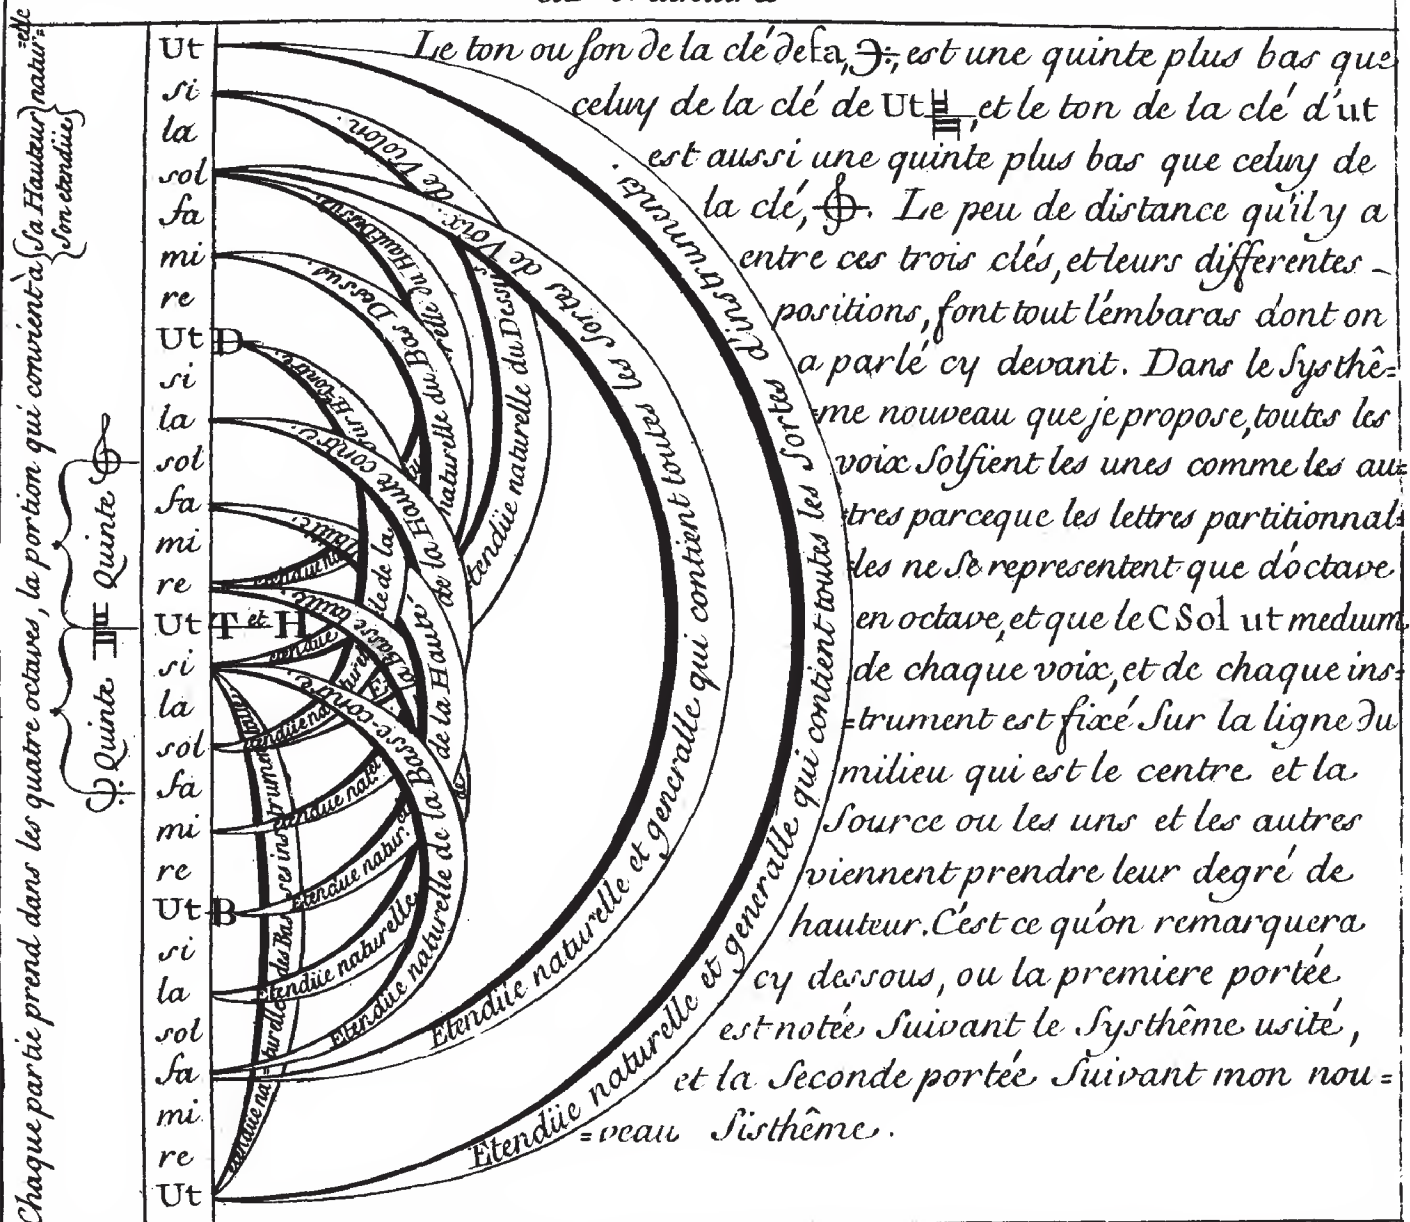 Chaque partie prend dans les quatre octaves, la portion qui convient à {Sa Hauteur} natur=
=elle
{Son etendüe}
Quinte
Quinte
Ut
si
la
sol
fa
mi
re
Ut D
si
la
sol
fa
mi
re
Ut T et H
si
la
sol
fa
mi
re
Ut B
si
la
sol
fa
mi
re
Ut
Etendüe naturelle et generalle qui contient toutes les Sortes d'instruments.
Etendüe naturelle et generalle qui contient toutes les Sortes de Voix.
de Violon.
etendüe naturelle du Dessus
naturelle du Bas Dessus.
de la Haute contre.
Etendüe naturelle de la Basse-contre.
Etendüe naturelle
Etendüe natur:
etendüe nat
Le ton ou son de la clé de fa, est une quinte plus bas que
celuy de la clé de Ut, et le ton de la clé d'ut
est aussi une quinte plus bas que celuy de
la clé, . Le peu de distance qu'il y a
entre ces trois clés, et leurs differentes
positions, font tout l'embaras dont on
a parlé cy devant. Dans le Systhê=
=me nouveau que je propose, toutes les
voix Solfient les unes comme les au=
=tres parceque les lettres partitionnal=
les ne se representent que d'octave
en octave, et que le C Sol ut medium
de chaque voix, et de chaque ins=
=trument est fixé Sur la ligne du
milieu qui est le centre et la
Source ou les uns et les autres
viennent prendre leur degré de
hauteur. C'est ce qu'on remarquera
cy dessous, ou la premiere portée
est notée Suivant le Systhême usité,
et la Seconde portée Suivant mon nou=
=veau Sisthême.